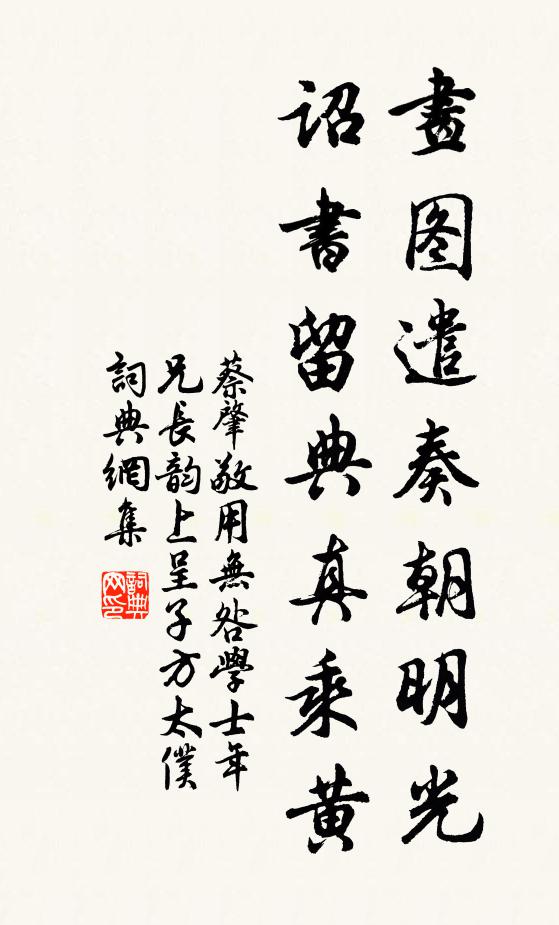 畫图遣奏朝明光
詔書留典真乘黄
蔡肇敬用無咎學士年
兄長韵上呈子方太僕
詞典網集
詞典
网印